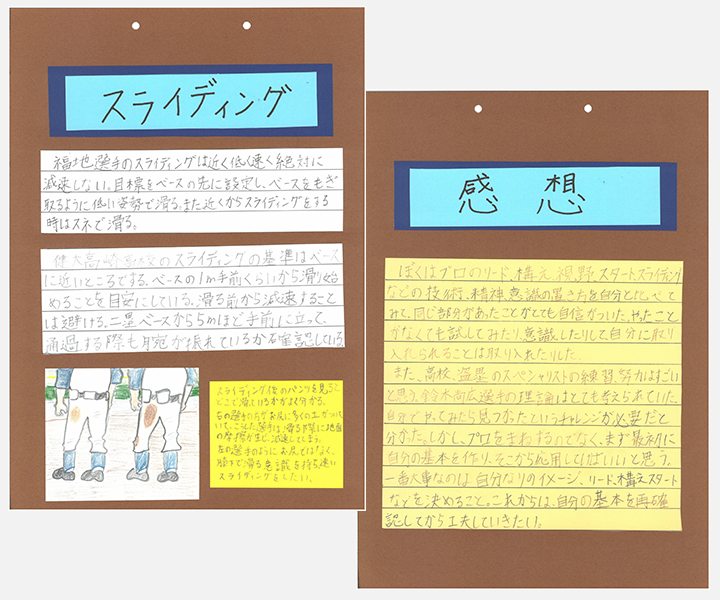 スライディング
福地選手のスライディングは近く低く速く絶対に
減速しない。目標をベースの先に設定し、ベースをもぎ
取るように低い姿勢で滑る。また近くからスライディングをする
時はスネで滑る。
健大高崎高校のスライディングの基準はベース
に近いところでする。ベースの1m手前くらいから滑り始
めることを目安にしている。滑る前から減速すること
は避ける。二塁ベースから5mほど手前に立って、
通過する際も腕が振れているか確認している。
スライディング後のパンツを見ると
どこで滑っているかがよく分かる。
右の選手の方がお尻に多くの土がついて
いて、こうした選手は滑る際に地面
の摩擦が生じ、減速してしまう。
左の選手のようにお尻ではなく、
膝下で滑る意識を持ち速い
スライディングをしたい。
感想
ぼくはプロのリード、構え、視野、スタート、スライディング
などの技術、精神、意識の置き方を自分と比べて
みて、同じ部分があったことがとても自信がついた。やったこと
がなくても試してみたり、意識したりして、自分に取り
入れられることは取り入れたりした。
また、高校、盗塁のスペシャリストの練習、努力はすごい
と思う。鈴木尚広選手の理論はとても考えられていた。
自分でやってみたら見つかったというチャレンジが必要だと
分かった。しかし、プロをまねするのでなく、まず最初に
自分の基本を作り、そこから応用していけばいいと思う。
一番大事なのは、自分なりのイメージ、リード、構え、スタート
などを決めること。これからは、自分の基本を再確
認してから工夫していきたい。